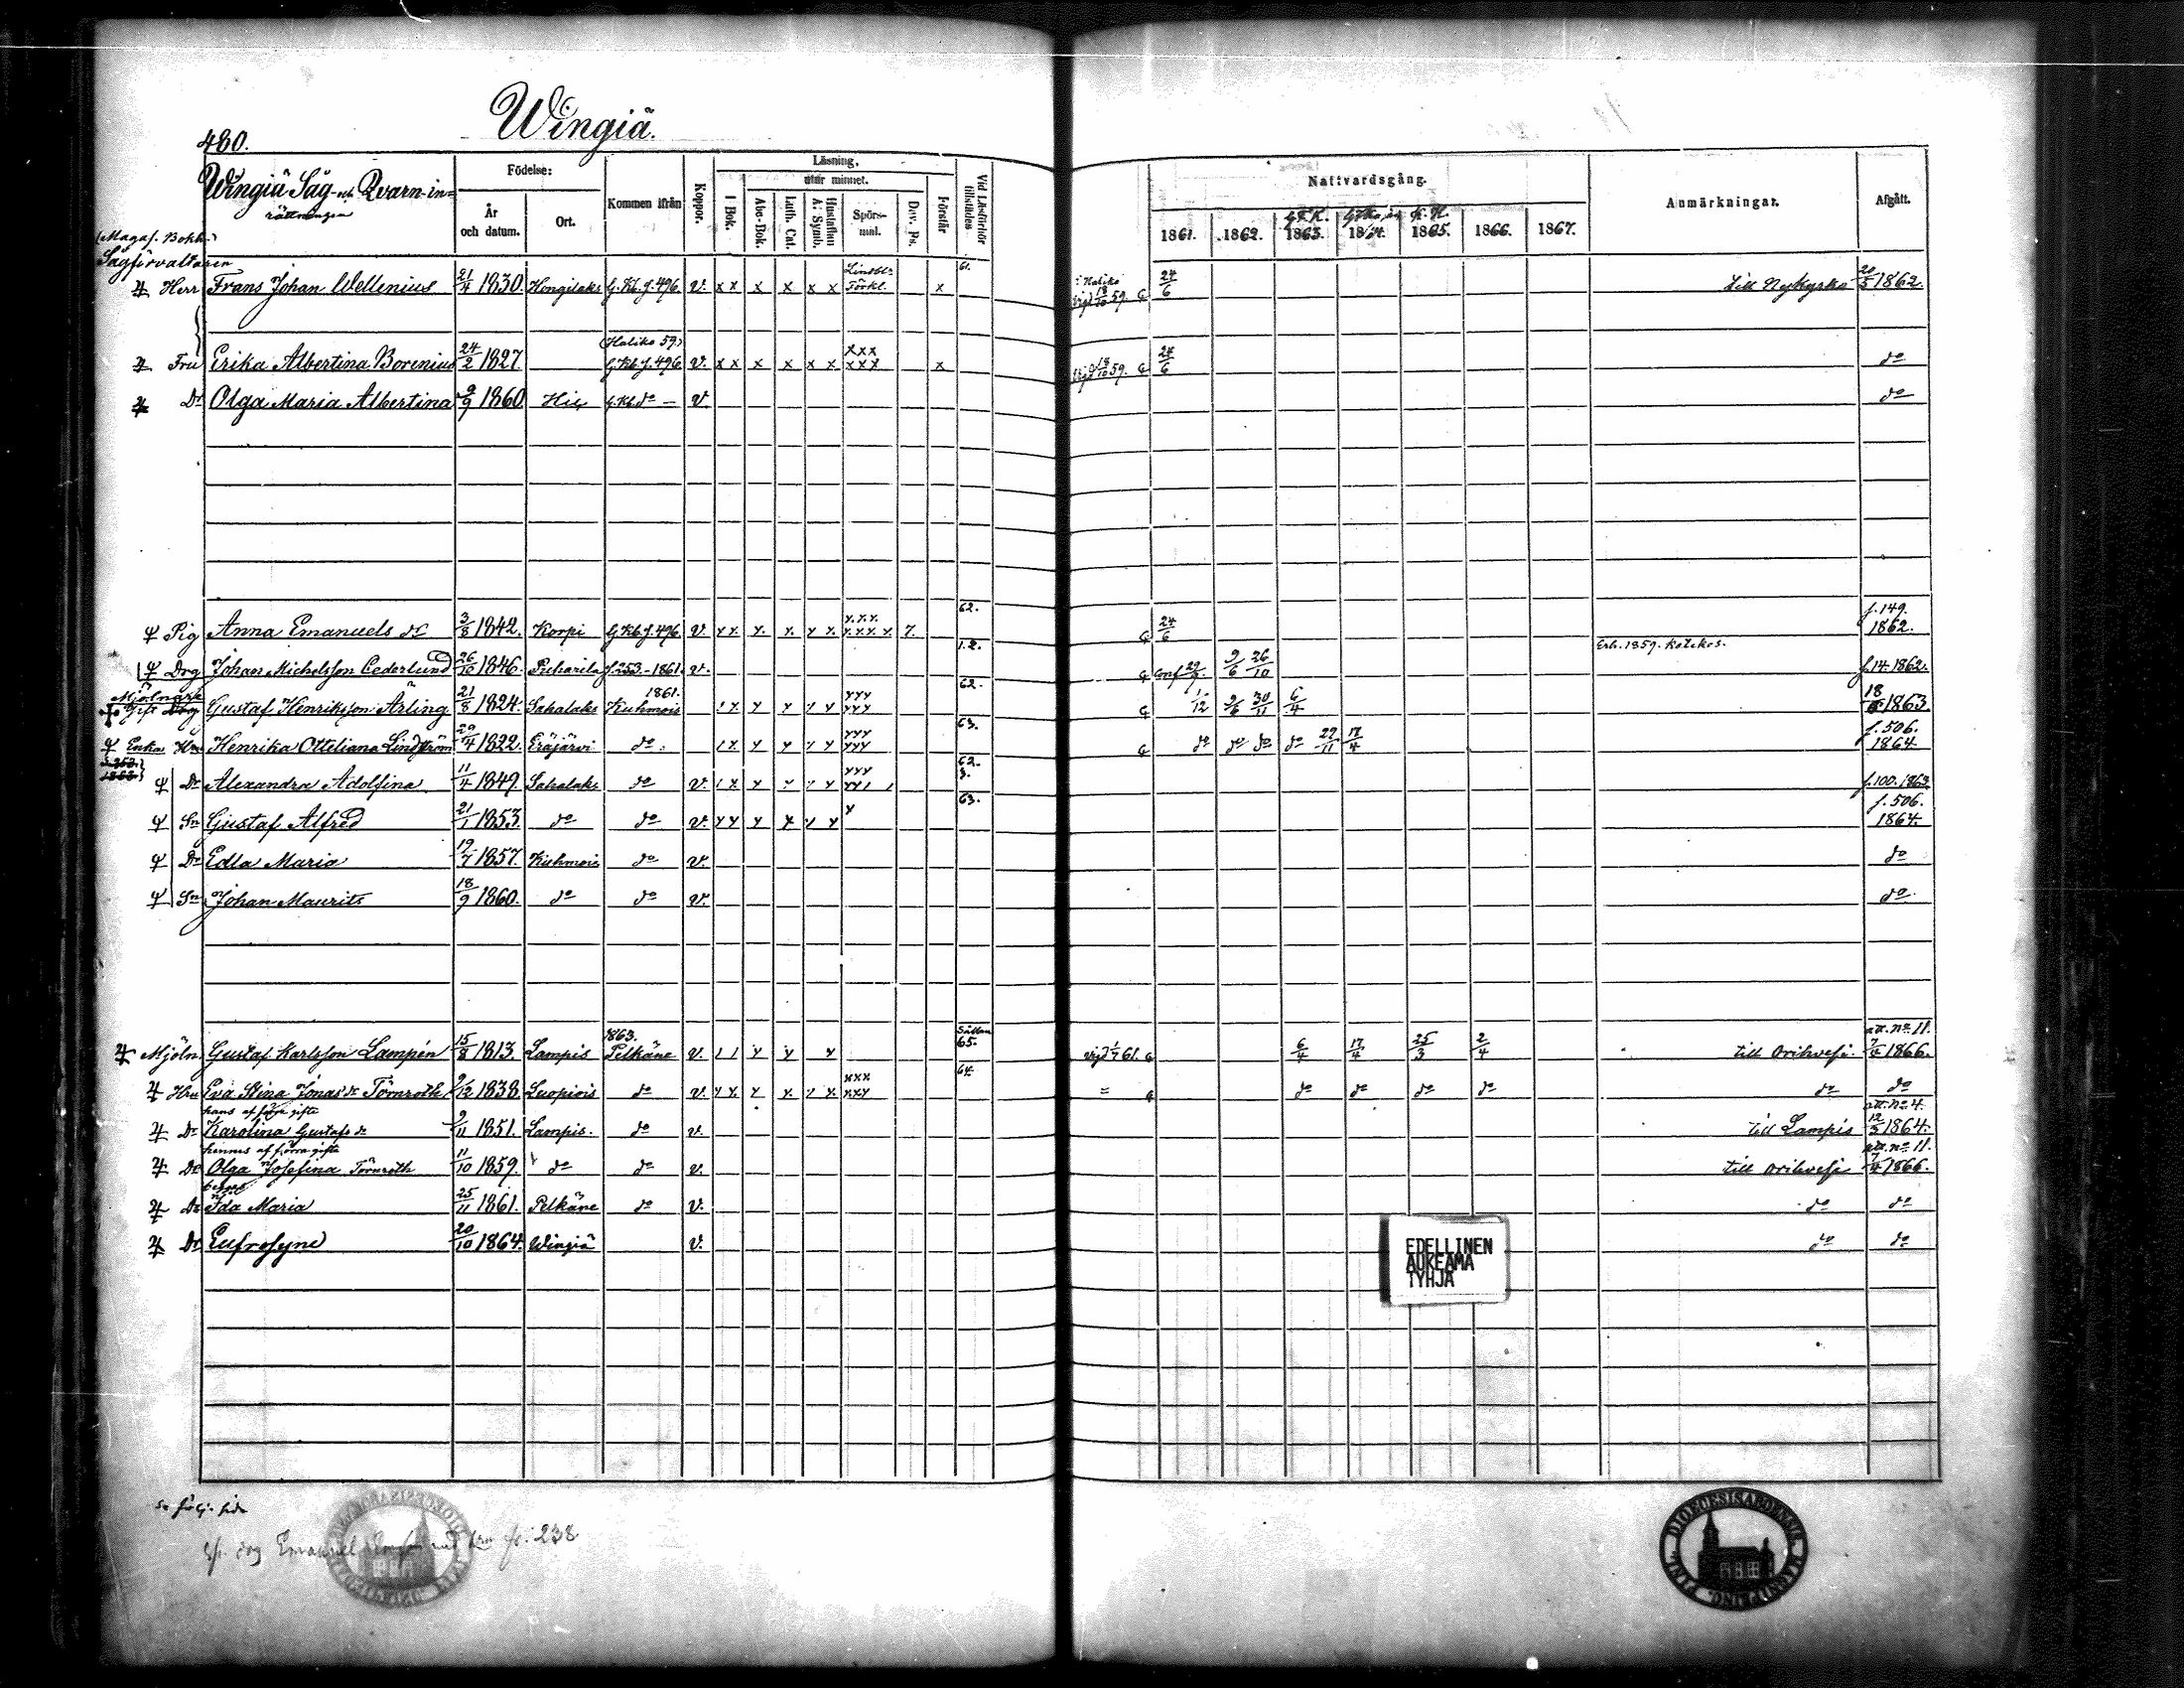 Wingiä.
480.
Wingiä Såg- och Qvarn-in=
rättningen
Födelse:
År och datum.
Ort.
Kommen ifrån
Koppor.
Läsning.
utur minnet.
I Bok.
Abc-Bok.
Luth. Cat.
Hustaflan A: Symb.
Spörs-mål.
Dav. Ps.
Förstår
Vid Läsförhör tillstädes
Nattvardsgång.
1861. 1862. 1863. 1864. 1865. 1866. 1867.
Anmärkningar.
Afgått.
(Magas. Bokh.)
Sågförvaltaren
Herr Frans Johan Wellenius 21/4 1830. Hongilaks G.Kb.f.496. v. x x x x x x Lindbl. Törkl. x 61. i Haliko vigd 18/10 59. 24/6 till Nykyrko 20/5 1862.
Fru Erika Albertina Borenius 24/2 1827. (Haliko 59) G.Kb.f.496. v. x x x x x x xxx xxx x vigd 18/10 59. 24/6 do
Dr Olga Maria Albertina 9/9 1860 Hic G.Kb. do - v. do
Pig Anna Emanuels dr 3/8 1842. Korpi G.Kb.f.496. v. 7. 62. 24/6 f.149. 1862.
Drg Johan Michelsson Cederlund 26/10 1846. Puharila f.253-1861. v. 1.2. Conf 9/6 26/10 Erh. 1859. f.14.1862.
Mjölnare
Gustaf Henriksson Ärling 21/8 1824. Sahalaks 1861. Kuhmois 62. 1/12 9/6 30/11 6/4 18 1863.
Enka Hru Henrika Otteliana Lindström 29/4 1822. Eräjärvi do. 63. do do do do 29/11 17/4 f.506. 1864
Dr Alexandra Adolfina 11/4 1849. Sahalaks do v. 62. 3. f.100.1863.
Sn Gustaf Alfred 21/1 1853. do do v. 63. f.506. 1864.
Dr Edla Maria 19/7 1857. Kuhmois do v. do
Sn Johan Maurits 18/9 1860. do do v. do
Mjöln. Gustaf Karlsson Lampén 15/8 1813. Lampis 1863. Pelkäne v. Sällan 65. vigd 1/7 61. 6/4 17/4 25/3 2/4 till Orihvesi att. No 11. 7/4 1866.
Hru Eva Stina Jonas dr Törnroth 9/12 1838. Luopiois do v. 64. = do do do do do do
hans af förra gifte
Dr Karolina Gustafs dr 9/11 1851. Lampis. do v. till Lampis att. No 4. 12/3 1864.
hennes af förra gifte
Dr Olga Josefina Törnroth 11/10 1859. do do v. till Orihvesi att. No 11. 7/4 1866.
Dr Ida Maria 25/11 1861. Pelkäne do v. do do
Dr Eufrosyne 20/10 1864. Wingiä v. do do
EDELLINEN
AUKEAMA
TYHJÄ
se följ. sida
Emanuel f. 238
DIOECESIS ABOENSIS